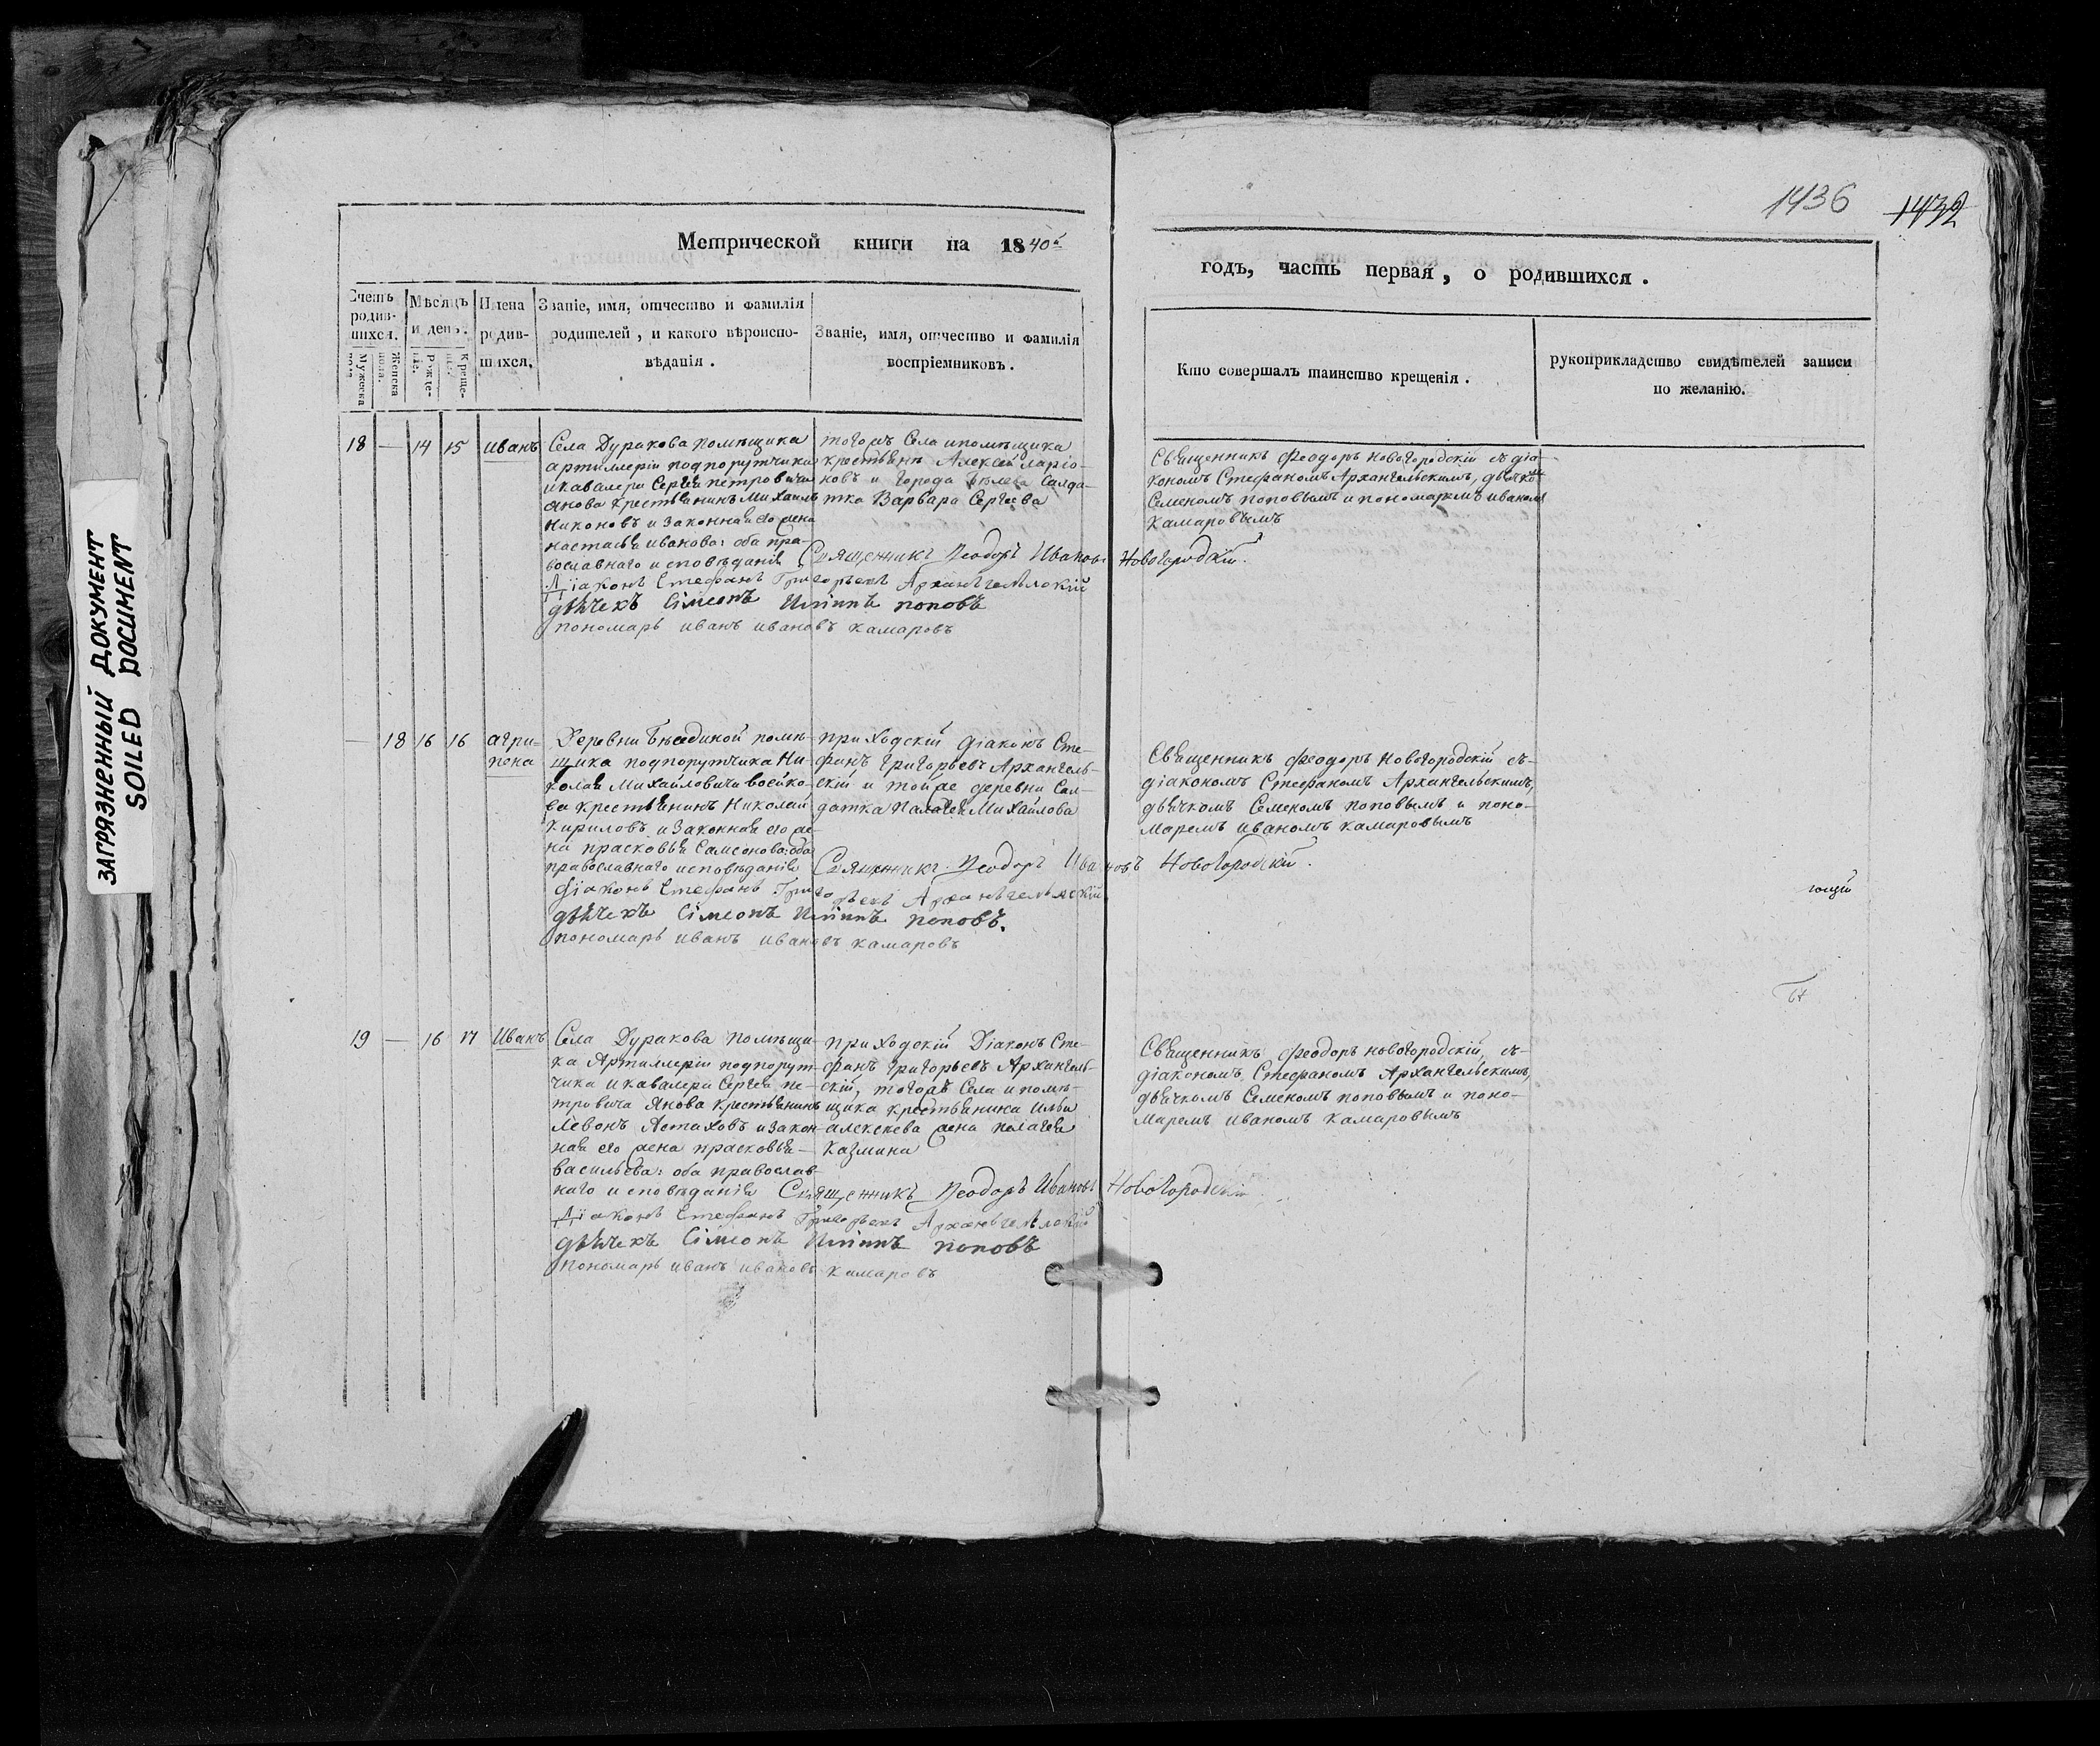 ЗАГРЯЗНЕННЫЙ ДОКУМЕНТ
SOILED DOCUMENT
1436 1432
Метрической книги на 1840й
годъ, часть первая, о родившихся.
Счетъ родив-шихся.
Мужеска пола.
Женска пола.
Мѣсяцъ и день.
Рожде-нія.
Креще-нія.
Имена родив-шихся.
Званіе, имя, отчество и фамилія
родителей, и какого вѣроиспо-
вѣданія.
Званіе, имя, отчество и фамилія
воспріемниковъ.
Кто совершалъ таинство крещенія.
рукоприкладство свидѣтелей записи
по желанію.
18 — 14 15 Иванъ
Села Дуракова помѣщика
артиллеріи подпорутчика
и кавалера Сергея петровича
Янова крестьянинъ Михаилъ
Никоновъ и Законная его жена
настасья иванова: оба пра-
вославнаго исповѣданія
тогожъ Села и помѣщика
крестьянъ Алексей ларіо-
новъ и города Бѣлева Салда-
тка Варвара Сергеева
Священникъ Феодоръ новогородскій съ діа-
кономъ Стефаномъ Архангельскимъ, дьячко
Семеномъ поповымъ и пономаремъ иваномъ
Камаровымъ
Священникъ Ѳеодоръ Ивановъ Новогородскій.
Діаконъ Стефанъ Григорьевъ Архангельскій
дьячекъ Сімеонъ Илiинъ поповъ
пономарь иванъ ивановъ камаровъ
— 18 16 16 агри-
пена
Деревни Бѣединой помѣ-
щика подпорутчика Ни-
колая Михайловича воейко-
ва крестьянинъ Николай
Кириловъ и Законная его же-
на прасковья Самсонова: оба
православнаго исповѣданія
приходскій діаконъ Сте-
фанъ Григорьевъ Архангель-
скій и той же деревни Сал-
датка палагея Михайлова
Священникъ Феодоръ Новогородскій съ-
діакономъ Стефаномъ Архангельскимъ,
дьячкомъ Семеномъ поповымъ и поно-
маремъ иваномъ камаровымъ
Священникъ Ѳеодоръ Ивановъ Новогородскій.
діаконъ Стефанъ Григорьевъ Архангельскій
дьячекъ Сімеонъ Илiинъ поповъ.
пономарь иванъ ивановъ камаровъ
19 — 16 17 Иванъ
Села Дуракова помѣщи-
ка Артиллеріи подпорут-
чика и кавалера Сергея пе-
тровича Янова крестьянинъ
Левонъ Астаховъ и закон-
ная его жена прасковья
васильева: оба православ-
наго исповѣданія
приходскій Діаконъ Сте-
фанъ Григорьевъ Архангель-
скій, тогожъ Села и помѣ-
щика крестьянина Ильи
алексеева жена пелагея
Казмина
Священникъ Феодоръ новогородскій, съ-
діакономъ Стефаномъ Архангельскимъ,
дьячкомъ Семеномъ поповымъ и поно-
маремъ иваномъ Камаровымъ
Священникъ Ѳеодоръ Ивановъ Новогородскій
Діаконъ Стефанъ Григорьевъ Архангельскій
дьячекъ Сімеонъ Илiинъ поповъ
пономарь иванъ ивановъ камаровъ